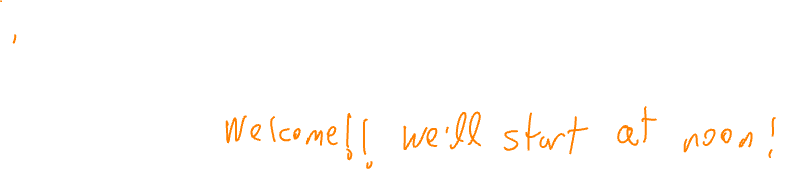 Welcome!! we'll start at noon!